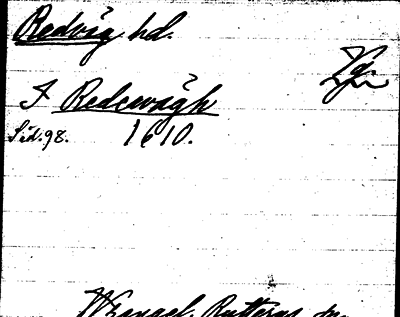 Redväg hd.
Vg.
I Redcevägh
Sid. 98. 1610.
Wrangel, Rutteras